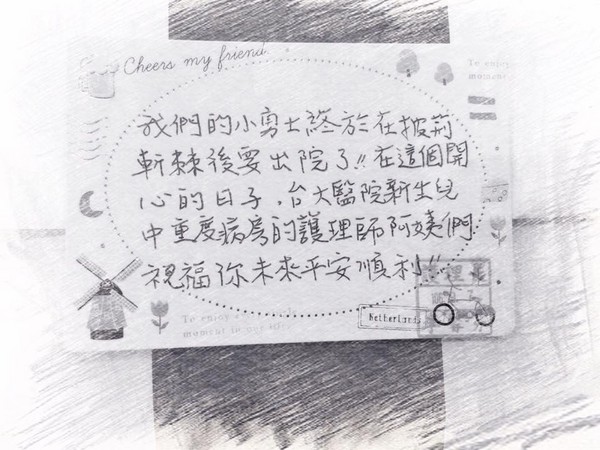 Cheers my friend
To enjoy
moment
我們的小勇士終於在披荊
斬棘後要出院了!!在這個開
心的日子,台大醫院新生兒
中重度病房的護理師阿姨們
祝福你未來平安順利!!
To enjoy
moment
Netherlands